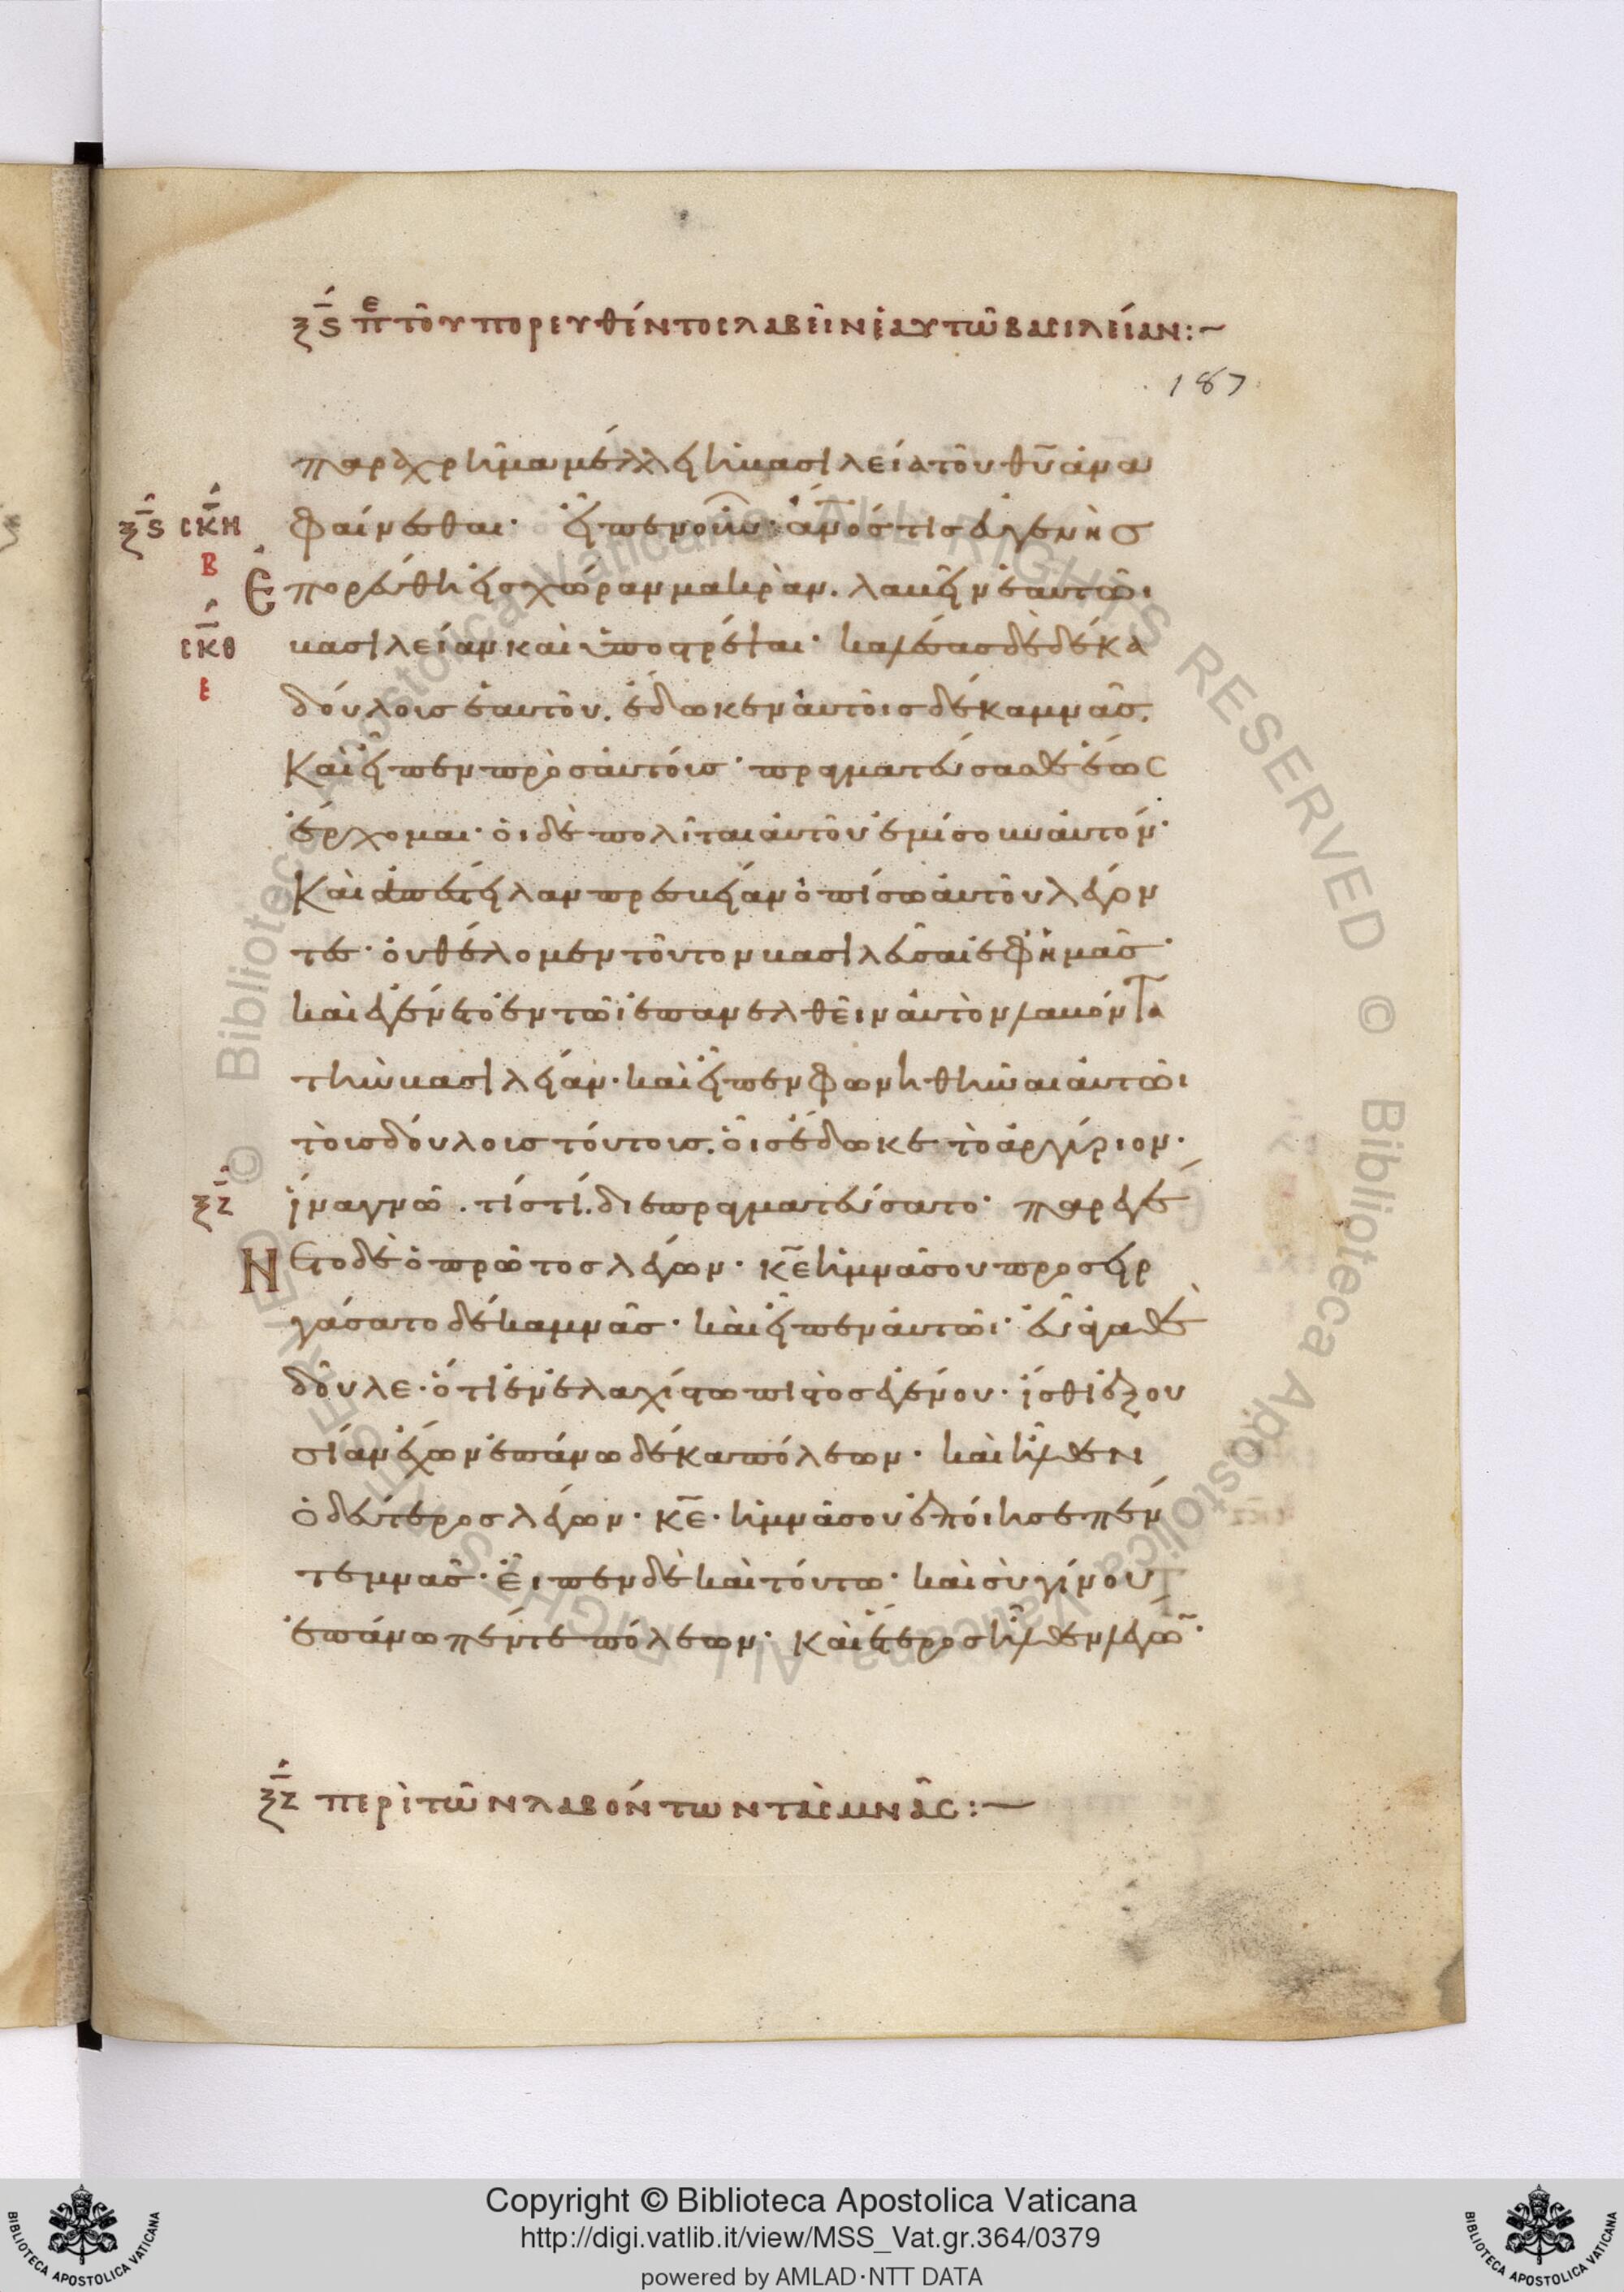 ξς πε τοῦ πορευθέντος λαβεῖν ἑαυτῶ βασιλείαν :~
187
παραχρῆμα μέλλει ἡ βασιλεία τοῦ θυ ἀνα
ξς σκη φαίνεσθαι· εἶπεν οὖν· ἀνος τίς εὐγενὴς
β
ἐπορεύθη εἰς χώραν μακρὰν. λαβεῖν ἑαυτῶι
σκθ βασιλείαν καὶ ὑποστρέψαι· καλέσας δὲ δέκα
ε
δούλους ἑαυτοῦ. ἔδωκεν αὐτοῖς δέκα μνᾶς.
Καὶ εἶπεν πρὸς αὐτούς· πραγματεύσασθε ἕως
ἔρχομαι· οἱ δὲ πολῖται αὐτοῦ ἐμίσουν αὐτόν·
Καὶ ἀπέστειλαν πρεσβείαν ὀπίσω αὐτοῦ λέγον
τες· οὐ θέλομεν τοῦτον βασιλεῦσαι ἐφ ἡμᾶς·
καὶ ἐγένετο ἐν τῶι ἐπανελθεῖν αὐτὸν λαβόντα
τὴν βασιλείαν· καὶ εἶπεν φωνηθῆναι αὐτῶι
τοὺς δούλους τούτους. οἷς ἔδωκε τὸ ἀργύριον·
ξζ ἵνα γνῶ. τίς τί. διεπραγματεύσατο· παρεγέ
Νετο δὲ ὁ πρῶτος λέγων· κε ἡ μνᾶ σου προσειρ
γάσατο δέκα μνᾶς· καὶ εἶπεν αὐτῶι· εὖ ἀγαθὲ
δοῦλε· ὅτι ἐν ἐλαχίστω πιστὸς ἐγένου· ἴσθι ἐξου
σίαν ἔχων ἐπάνω δέκα πόλεων· καὶ ἦλθεν
ὁ δεύτερος λέγων· κε· ἡ μνᾶ σου ἐποίησε πέν
τε μνᾶς· εἶπεν δὲ καὶ τούτω· καὶ σὺ γίνου
ἐπάνω πέντε πόλεων· καὶ ἕτερος ἦλθεν λέγω·
ξζ περὶ τῶν λαβόντων τὰς μνᾶς :~
Copyright © Biblioteca Apostolica Vaticana
http://digi.vatlib.it/view/MSS_Vat.gr.364/0379
powered by AMLAD·NTT DATA
BIBLIOTECA APOSTOLICA VATICANA
BIBLIOTECA APOSTOLICA VATICANA